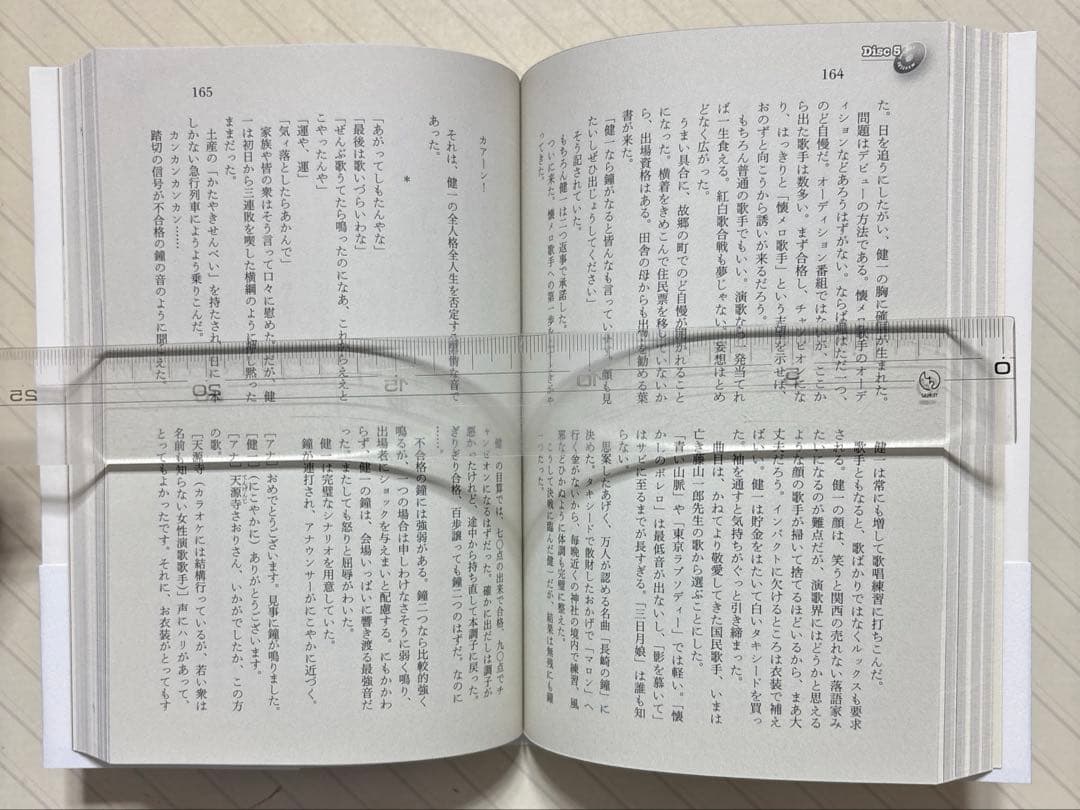 Disc 5
164
た。日を追うにしたが、健一の胸に確信が生まれた。
問題はデビューの方法である。懐メロ歌手のオーデ
ィションなどあろうはずがない。ならば道はただ一つ、
のど自慢だ。オーディション番組ではただが、ここか
ら出た歌手は数多い。まず合格し、チャンピオンにな
り、はっきりと「懐メロ歌手」という志望を示せば、
おのずと向こうから誘いが来るだろう。
もちろん普通の歌手でもいい。演歌なら一発当てれ
ば一生食える。紅白歌合戦も夢じゃない。妄想はとめ
どなく広がった。
うまい具合に、故郷の町でのど自慢が開かれること
になった。横着をきめこんで住民票を移していないか
ら、出場資格はある。田舎の母からも出場を勧める葉
書が来た。
「健一なら鐘がなると皆んなも言っています。顔も見
たいしぜひ出じょうしてください」
そう記されていた。
もちろん健一は二つ返事で承諾した。
ついに来た。懐メロ歌手への第一歩を
ってきた。
健一は常にも増して歌唱練習に打ちこんだ。
歌手ともなると、歌ばかりではなくルックスも要求
される。健一の顔は、笑うと関西の売れない落語家み
たいになるのが難点だが、演歌界にはどうかと思える
ような顔の歌手が掃いて捨てるほどいるから、まあ大
丈夫だろう。インパクトに欠けるところは衣装で補え
ばいい。健一は貯金をはたいて白いタキシードを買っ
た。袖を通すと気持ちがぐっと引き締まった。
曲目は、かねてより敬愛してきた国民歌手、いまは
亡き藤山一郎先生の歌から選ぶことにした。
「青い山脈」や「東京ラプソディー」では軽い。「懐
かしのボレロ」は最低音が出ないし、「影を慕いて」
はサビに至るまでが長すぎる。「三日月娘」は誰も知
らない。
思案したあげく、万人が認める名曲「長崎の鐘」に
決めた。タキシードで散財したおかげで「マロン」へ
行く金がないから、毎晩近くの神社の境内で練習、風
邪などひかぬように体調も完璧に整えた。
こうして決戦に臨んだ健一だが、結果は無残にも鐘
一つだった。
165
カアーン！
それは、健一の全人格全人生を否定する無情な音で
あった。
＊
「あがってしもたんやな」
「最後は歌いづらいわな」
「ぜんぶ歌うてたら鳴ったのになあ、これからええと
こやったんや」
「運や、運」
「気ィ落としたらあかんで」
家族や皆の衆はそう言って口々に慰めた。だが、健
一は初日から三連敗を喫した横綱のように押し黙った
ままだった。
土産の「かたやきせんべい」を持たされ、一日に
しかない急行列車にようよう乗りこんだ。
カンカンカンカン……
踏切の信号が不合格の鐘の音のように聞こえた。
健一の目算では、七〇点の出来で合格、九〇点でチ
ャンピオンになるはずだった。確かに出だしは調子が
悪かったけれど、途中から持ち直して本調子に戻った。
ぎりぎり合格、百歩譲っても鐘二つのはずだ。なのに
……。
不合格の鐘には強弱がある。鐘二つなら比較的強く
鳴るが、一つの場合は申しわけなさそうに弱く鳴り、
出場者にショックを与えまいと配慮する。にもかかわ
らず、健一の鐘は、会場いっぱいに響き渡る最強音だ
った。またしても怒りと屈辱がわいた。
健一は完璧なシナリオを用意していた。
鐘が連打され、アナウンサーがにこやかに近づく。
［アナ］おめでとうございます。見事に鐘が鳴りました。
［健一］（にこやかに）ありがとうございます。
［アナ］天源寺さおりさん、いかがでしたか、この方
の歌。
［天源寺（カラオケには結構行っているが、若い衆は
名前も知らない女性演歌歌手）］声にハリがあって、
とってもよかったです。それに、お衣装がとってもす
0
5
10
15
20
25